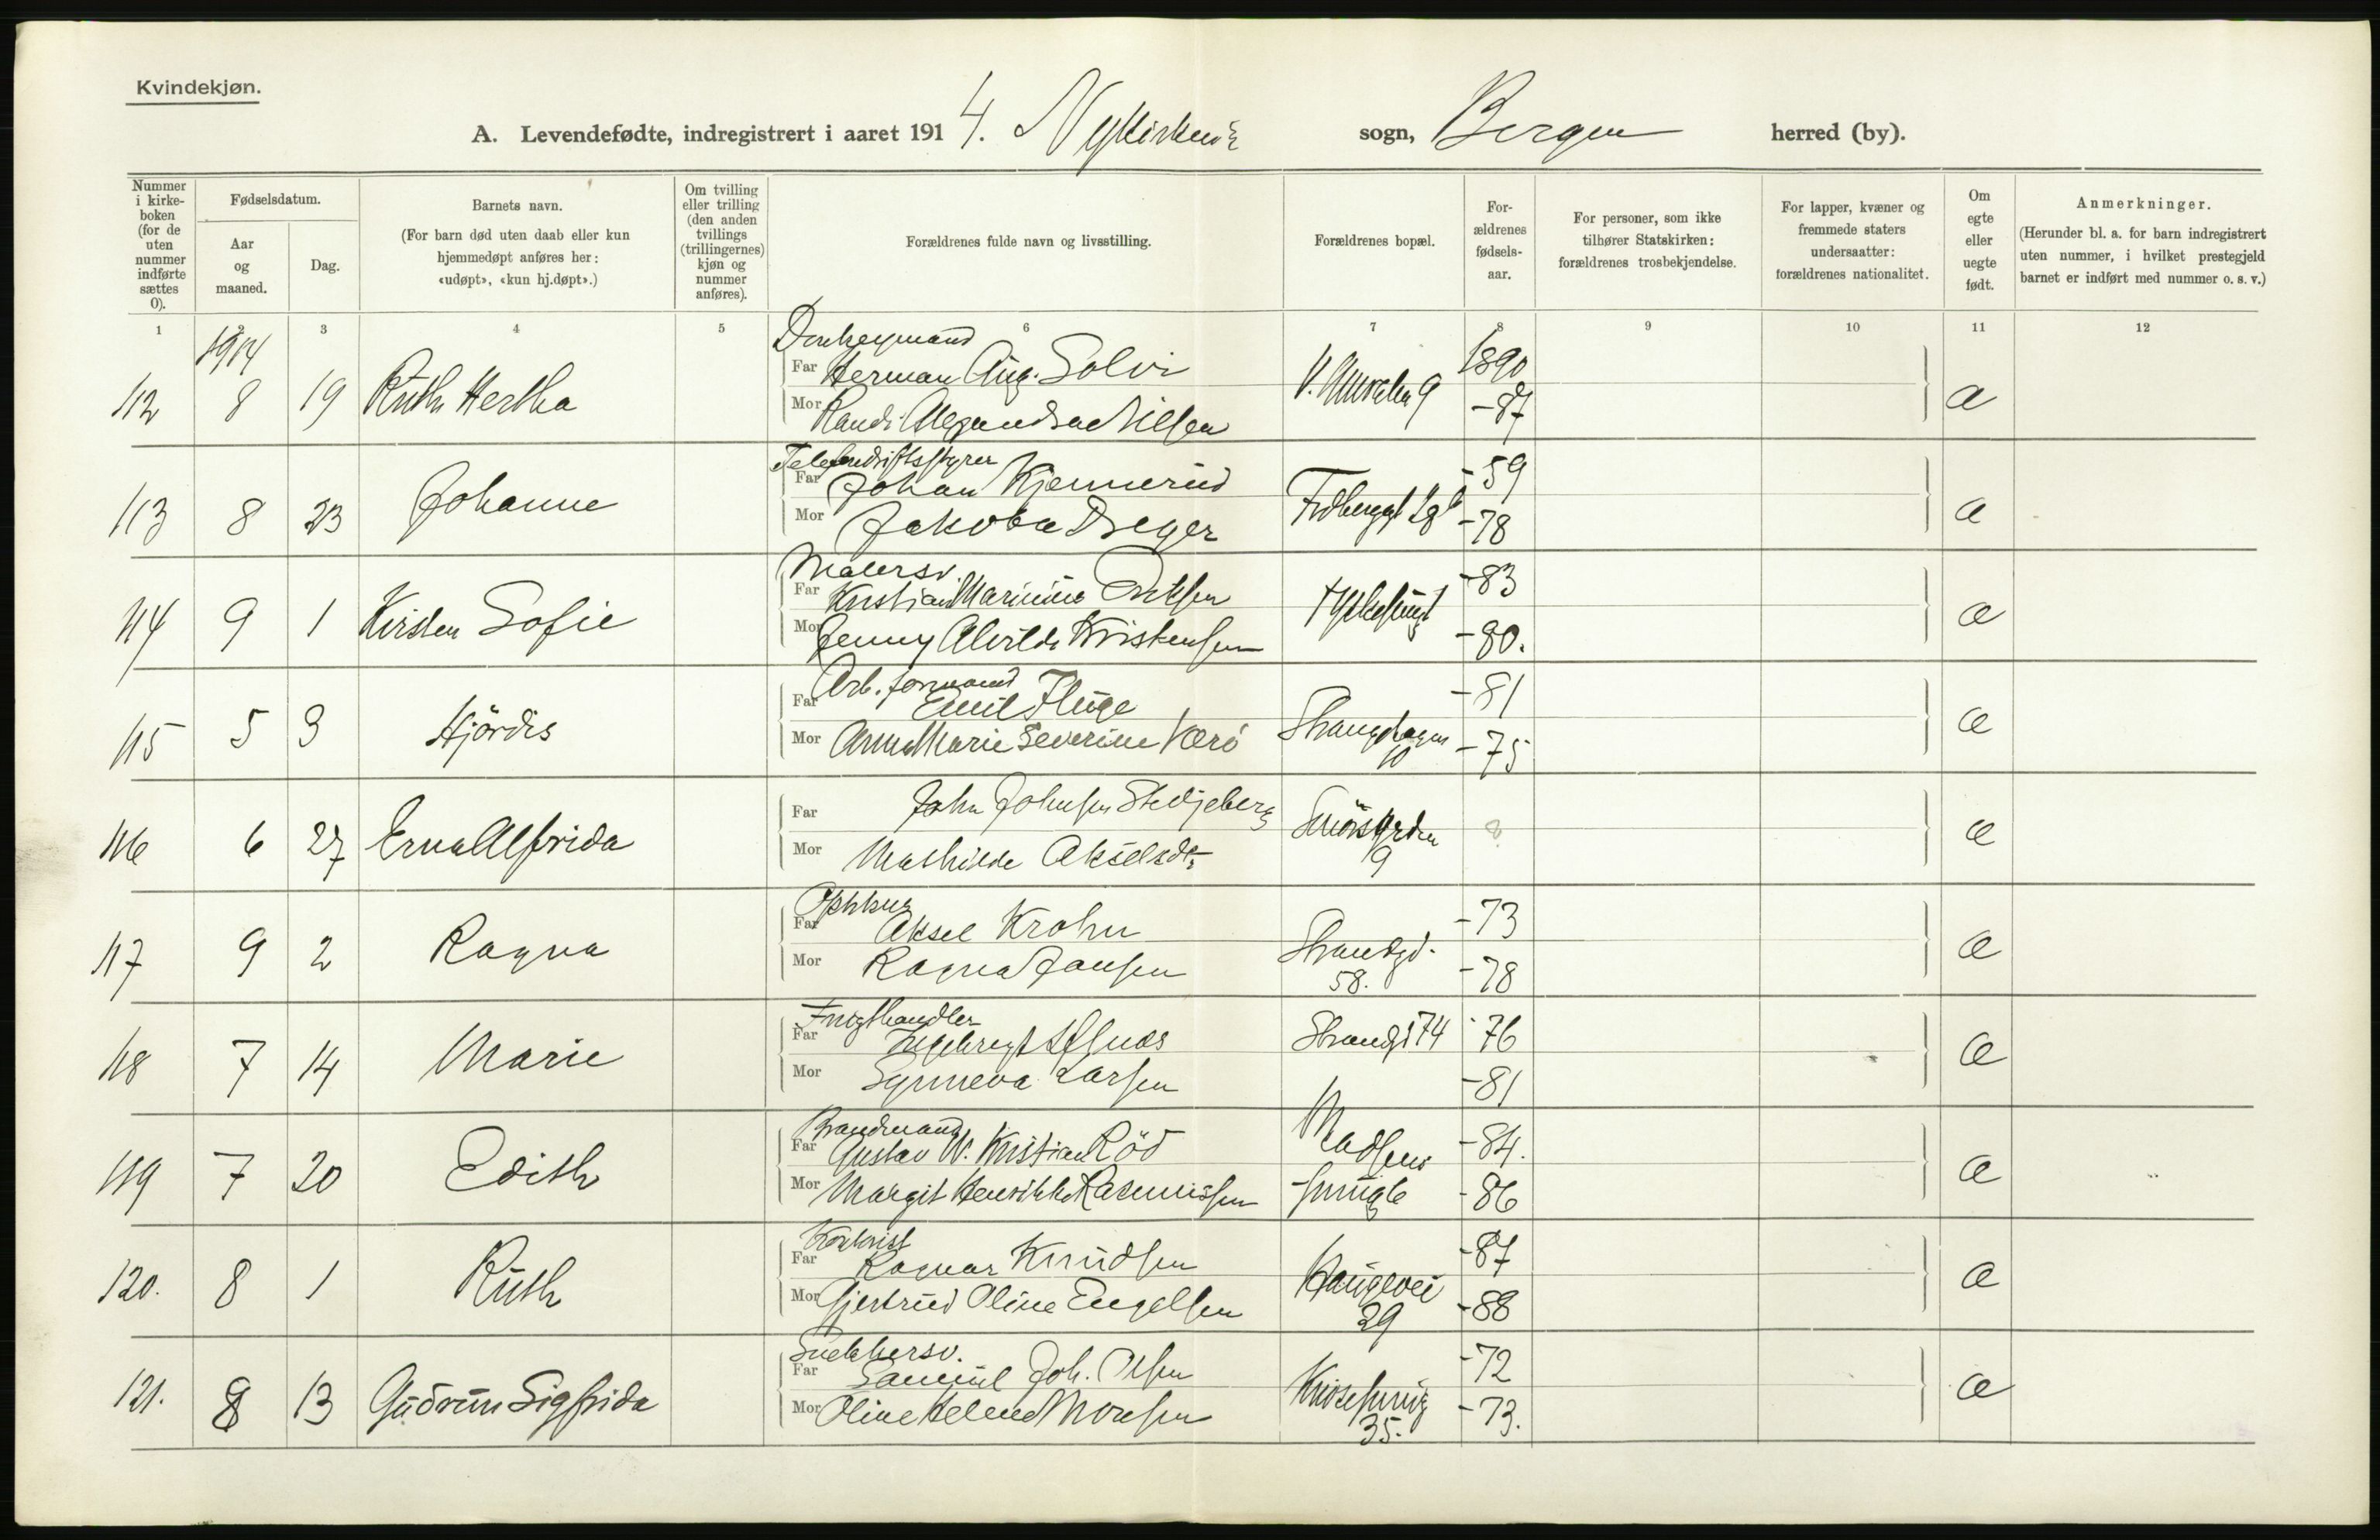 Kvindekjøn.
A. Levendefødte, indregistrert i aaret 1914. Nykirkens sogn, Bergen herred (by).
Nummer i kirke-boken (for de uten nummer indførte sættes 0).
Fødselsdatum.
Aar og maaned.
Dag.
Barnets navn.
(For barn død uten daab eller kun hjemmedøpt anføres her: «udøpt», «kun hj.døpt».)
Om tvilling eller trilling (den anden tvillings (trillingernes) kjøn og nummer anføres).
Forældrenes fulde navn og livsstilling.
Forældrenes bopæl.
For-ældrenes fødsels-aar.
For personer, som ikke tilhører Statskirken: forældrenes trosbekjendelse.
For lapper, kvæner og fremmede staters undersaatter: forældrenes nationalitet.
Om egte eller uegte født.
Anmerkninger.
(Herunder bl. a. for barn indregistrert uten nummer, i hvilket prestegjeld barnet er indført med nummer o. s. v.)
1 2 3 4 5 6 7 8 9 10 11 12
1914
Donkeymand
112 8 19 Ruth Hertha
Far Herman Aug. Solvi 1890
Mor Randi Alexandra Nilsen V. Muralm 9 -87 a
113 8 23 Johanne
Far Johan Kjennerud -59
Mor Jakoba Dreyer -78 a
Malersv.
114 9 1 Kirsten Sofie
Far Kristian Marinius -83
Mor Jenny Alvilde Kristensen -80. a
Arb. formand
115 5 3 Hjördis
Far Emil Fluge -81
Mor Anna Marie Severine Værö Strangehagen 10 -75 a
116 6 27 Erna Alfrida
Far John Johnsen Stedjeberg
Mor Mathilde Akselsdtr Smörsgrden 9 a
117 9 2 Ragna
Far Aksel Krohn -73
Mor Ragna Jansen Strandgd. 58. -78 a
Frugthandler
118 7 14 Marie
Far Ingebregt Strandgd 74 -76
Mor Synneva Larsen -81 a
Brandmand
119 7 20 Edith
Far Gustav W. Kristian Röd -84.
Mor Margit Henrikke Rasmussen Madsens smug 6 -86 a
Kontorist
120. 8 1 Ruth
Far Ragnar Knudsen -87
Mor Gjertrud Oline Engelsen Haugevei 29 -88 a
Snekkersv.
121. 8 13 Gudrun Sigfrida
Far Samuel Joh. Olsen -72
Mor Oline Helene Monsen Knösesmug 35. -73. a